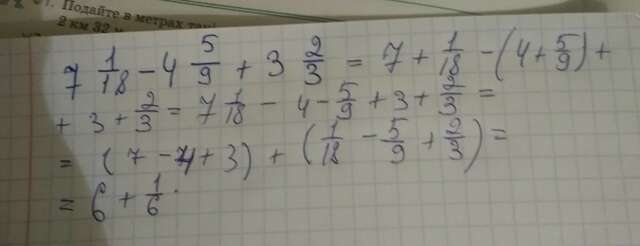 Подайте в метрах
2 км 32 м
7 1/18 - 4 5/9 + 3 2/3 = 7 + 1/18 - (4 + 5/9) +
+ 3 + 2/3 = 7 1/18 - 4 - 5/9 + 3 + 2/3 =
= (7 - 4 + 3) + (1/18 - 5/9 + 2/3) =
= 6 + 1/6.